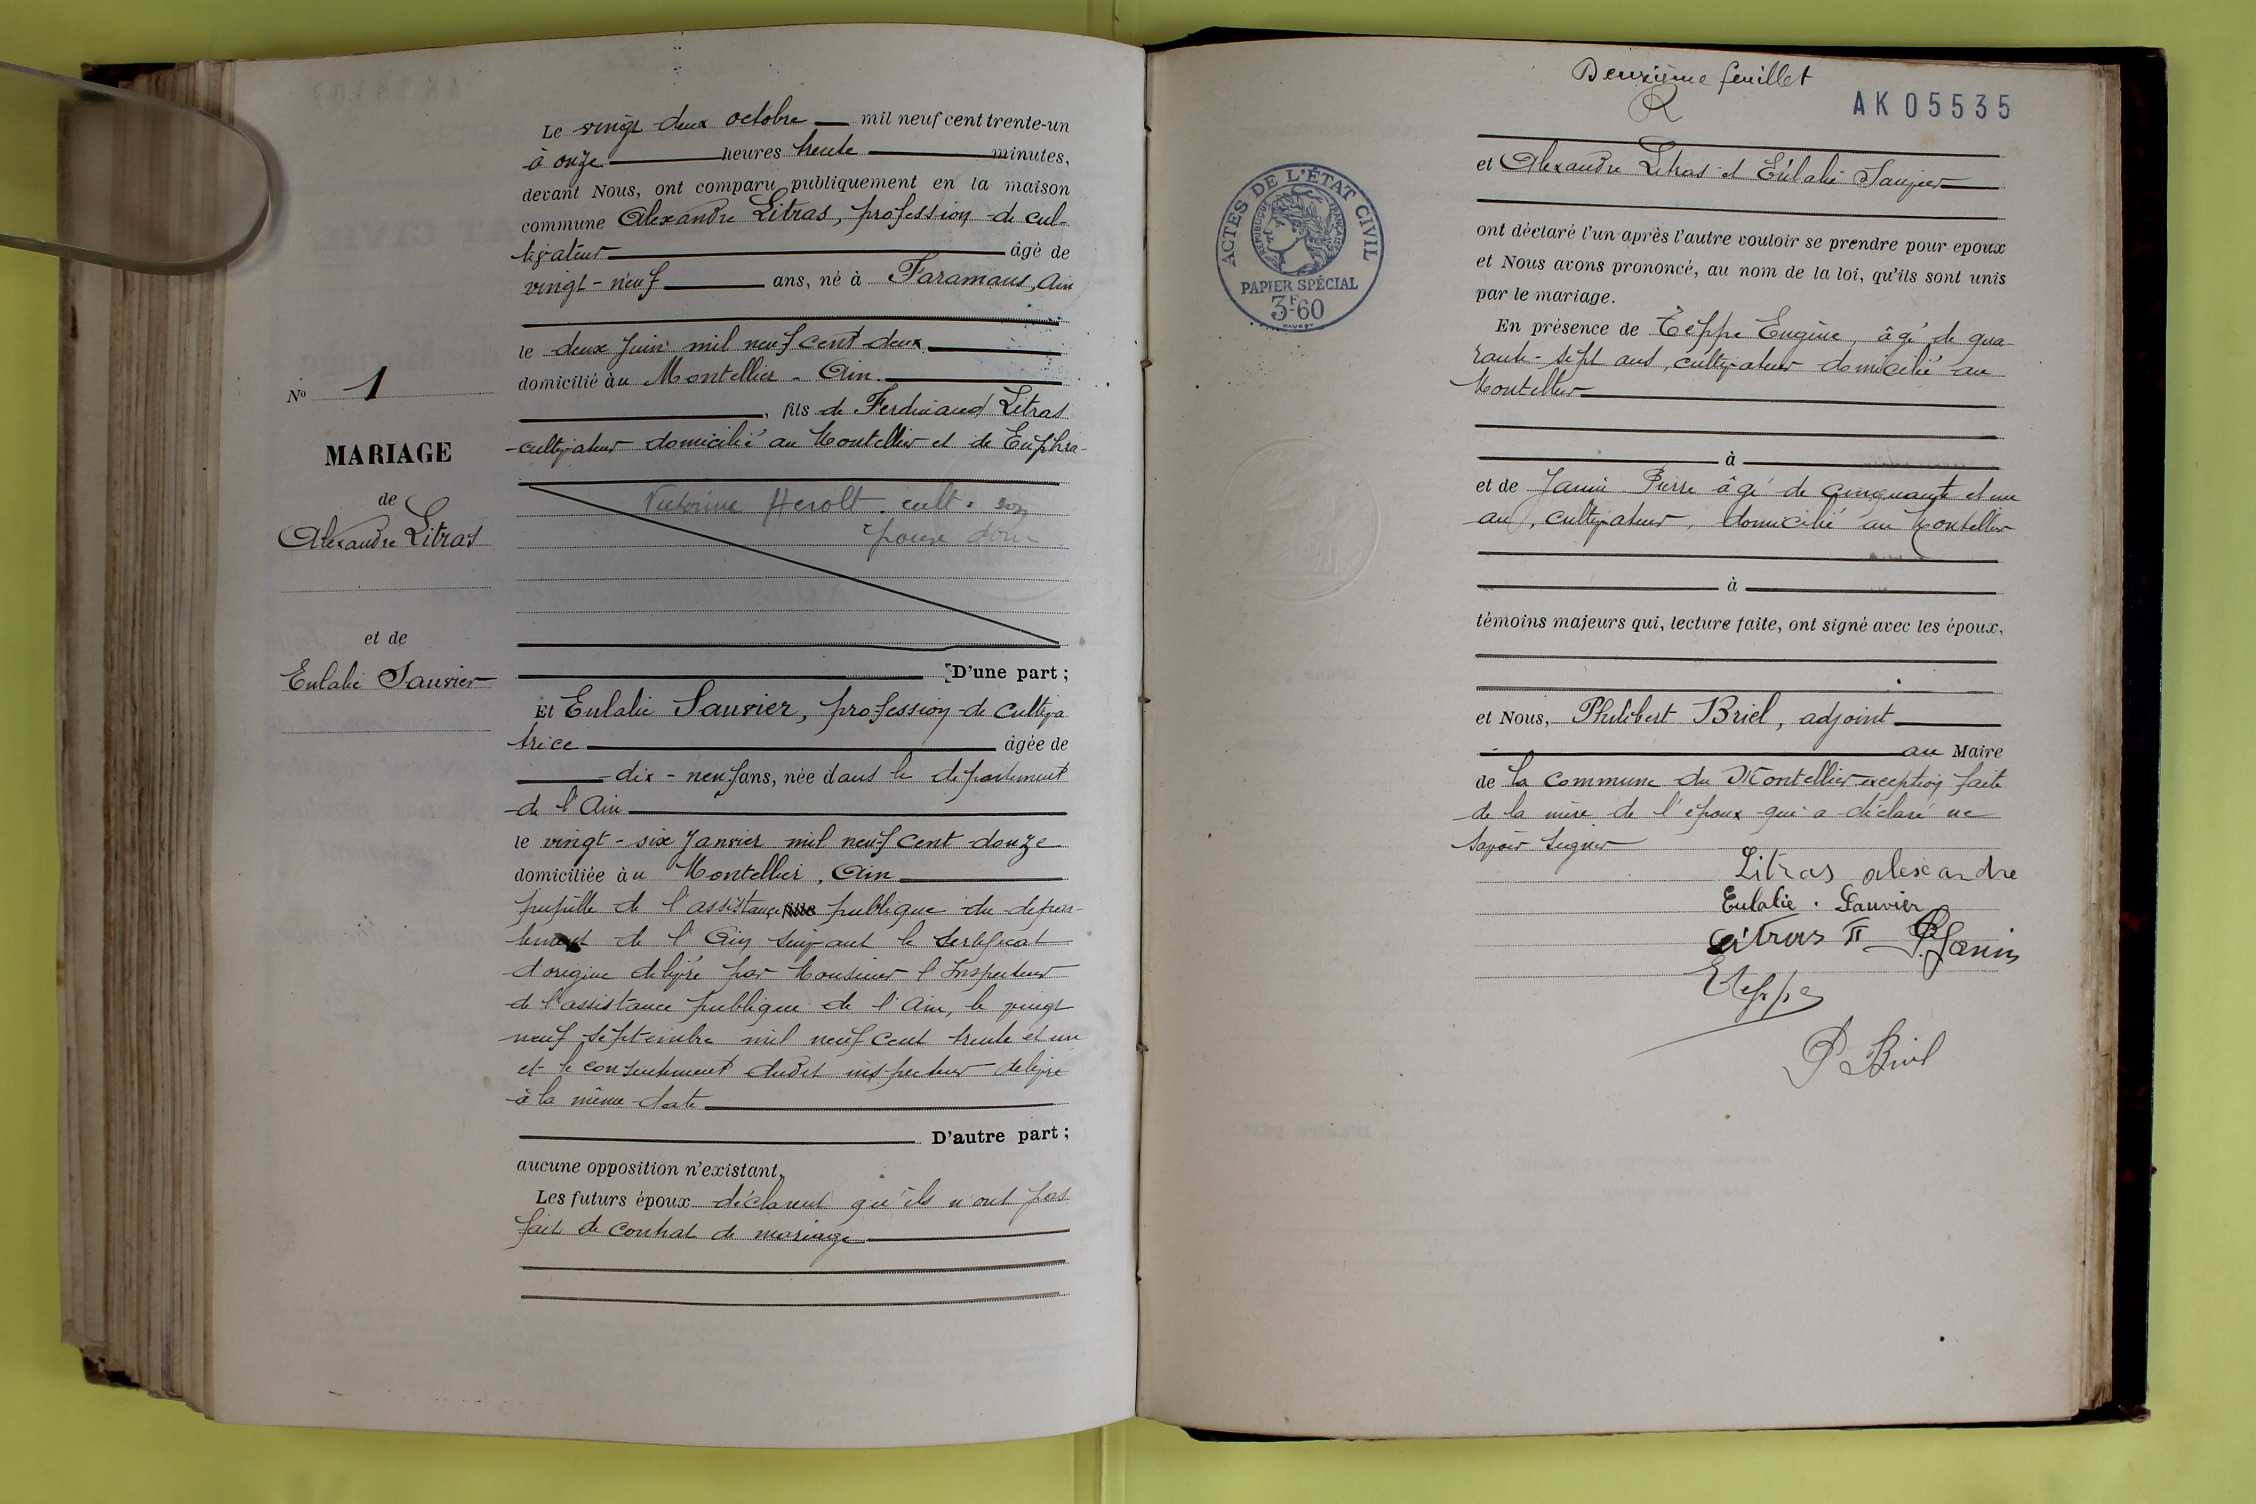 Le vingt deux octobre mil neuf cent trente-un
à onze heures trente minutes,
devant Nous, ont comparu publiquement en la maison
commune Alexandre Litras, profession de cul-
tivateur âgé de
vingt-neuf ans, né à Faramans, Ain
le deux juin mil neuf cent deux
domicilié au Montellier. Ain.
, fils de Ferdinand Litras
cultivateur domicilié au Montellier et de Euphra-
Victorine Herolt. cult. son
épouse dom
D'une part ;
No 1
MARIAGE
de
Alexandre Litras
et de
Eulalie Sauvier
Et Eulalie Sauvier, profession de cultiva
trice âgée de
dix-neuf ans, née dans le département
de l'Ain
le vingt-six Janvier mil neuf cent douze
domiciliée au Montellier, Ain
pupille de l'assistance publique du dépar-
tement de l'Ain suivant le certificat
d'origine délivré par Monsieur l'Inspecteur
de l'assistance publique de l'Ain, le vingt
neuf septembre mil neuf cent trente et un
et le consentement dudit inspecteur délivré
à la même date
D'autre part ;
aucune opposition n'existant,
Les futurs époux déclarent qu'ils n'ont pas
fait de contrat de mariage
Deuxième feuillet
AK 05535
ACTES DE L'ÉTAT CIVIL
RÉPUBLIQUE FRANÇAISE
PAPIER SPÉCIAL
3F60
et Alexandre Litras et Eulalie Sauvier
ont déclaré l'un après l'autre vouloir se prendre pour epoux
et Nous avons prononcé, au nom de la loi, qu'ils sont unis
par le mariage.
En présence de Teppe Eugène, âgé de qua
rante-sept ans, cultivateur domicilié au
Montellier
à
et de Janin Pierre âgé de cinquante et un
an, cultivateur, domicilié au Montellier
à
témoins majeurs qui, lecture faite, ont signé avec les époux,
et Nous, Philibert Briel, adjoint
au Maire
de la commune du Montellier exception faite
de la mère de l'époux qui a déclaré ne
savoir signer
Litras alexandre
Eulalie. Sauvier
Litras F P. Janin
E Teppe
P Briel